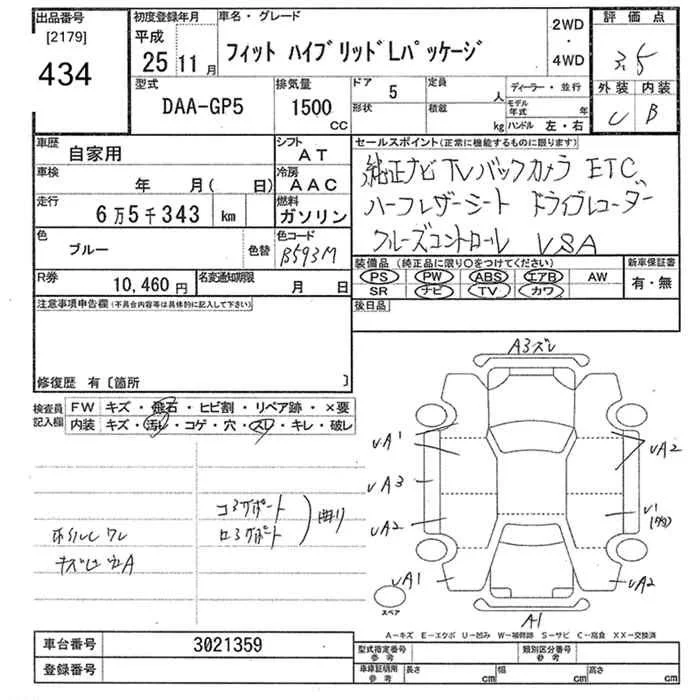 出品番号
[2179]
434
初度登録年月
平成
25 11月
車名・グレード
フィット ハイブリッドLパッケージ
2WD
・
4WD
評価点
3.5
外装 内装
C B
型式
DAA-GP5
排気量
1500
CC
ドア 5
形状
定員 人
積載 kg
ディーラー・並行
モデル年式 年
ハンドル 左・右
車歴
自家用
シフト
AT
車検
年 月( 日)
冷房
AAC
走行
6万5千343 km
燃料
ガソリン
色
ブルー
色替
色コード
B593M
R券
10,460円
名変通知期限
月 日
セールスポイント(正常に機能するものに限ります)
純正ナビ TV バックカメラ ETC
ハーフレザーシート ドライブレコーダー
クルーズコントロール VSA
装備品(純正品に限り〇をつけてください)
PS PW ABS エアB AW
SR ナビ TV カワ
新車保証書
有・無
注意事項申告欄(不具合内容等は具体的に記入して下さい)
後日品
修復歴 有〔箇所 〕
検査員
記入欄
FW キズ・飛石・ヒビ割・リペア跡・×要
内装 キズ・汚レ・コゲ・穴・スレ・キレ・破レ
コアサポート
ロアサポート
曲り
ホイル
A3 ズレ
UA1
UA3
UA2
UA1
UA2
U1
UA2
A1
スペア
A-キズ E-エクボ U-凹み W-補修跡 S-サビ C-腐食 XX-交換済
車台番号 3021359
登録番号
型式指定番号
参考
類別区分番号
参考
車庫証明用
参考
長さ cm 幅 cm 高さ cm